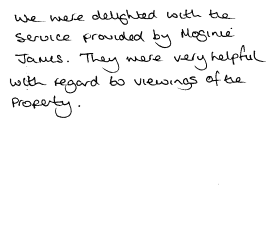 We were delighted with the
service provided by Moginie
James. They were very helpful
with regard to viewings of the
Property.